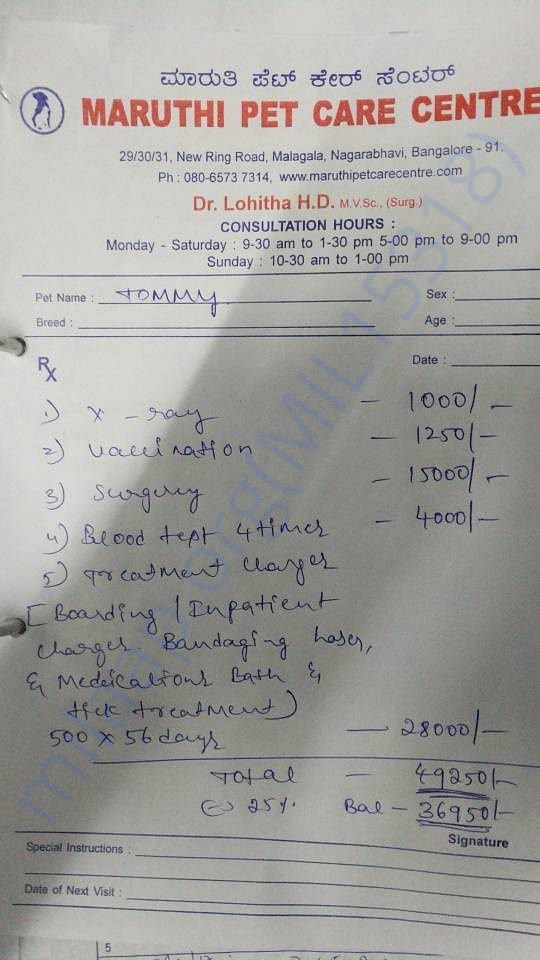 ಮಾರುತಿ ಪೆಟ್ ಕೇರ್ ಸೆಂಟರ್
MARUTHI PET CARE CENTRE
29/30/31, New Ring Road, Malagala, Nagarabhavi, Bangalore - 91.
Ph : 080-6573 7314, www.maruthipetcarecentre.com
Dr. Lohitha H.D. M.V.Sc., (Surg.)
CONSULTATION HOURS :
Monday - Saturday : 9-30 am to 1-30 pm 5-00 pm to 9-00 pm
Sunday : 10-30 am to 1-00 pm
Pet Name : TOMMY Sex :
Breed : Age :
Rx Date :
1) X-ray - 1000/-
2) Vaccination - 1250/-
3) Surgery - 15000/-
4) Blood test 4 times - 4000/-
5) Treatment charges
[Boarding / Inpatient
charges. Bandaging laser,
& Medications Bath &
tick treatment)
500 x 56 days - 28000/-
TOTAL - 49250/-
(-) 25%. Bal - 36950/-
Signature
Special Instructions :
Date of Next Visit :
5
milaap.org(MIL15318)